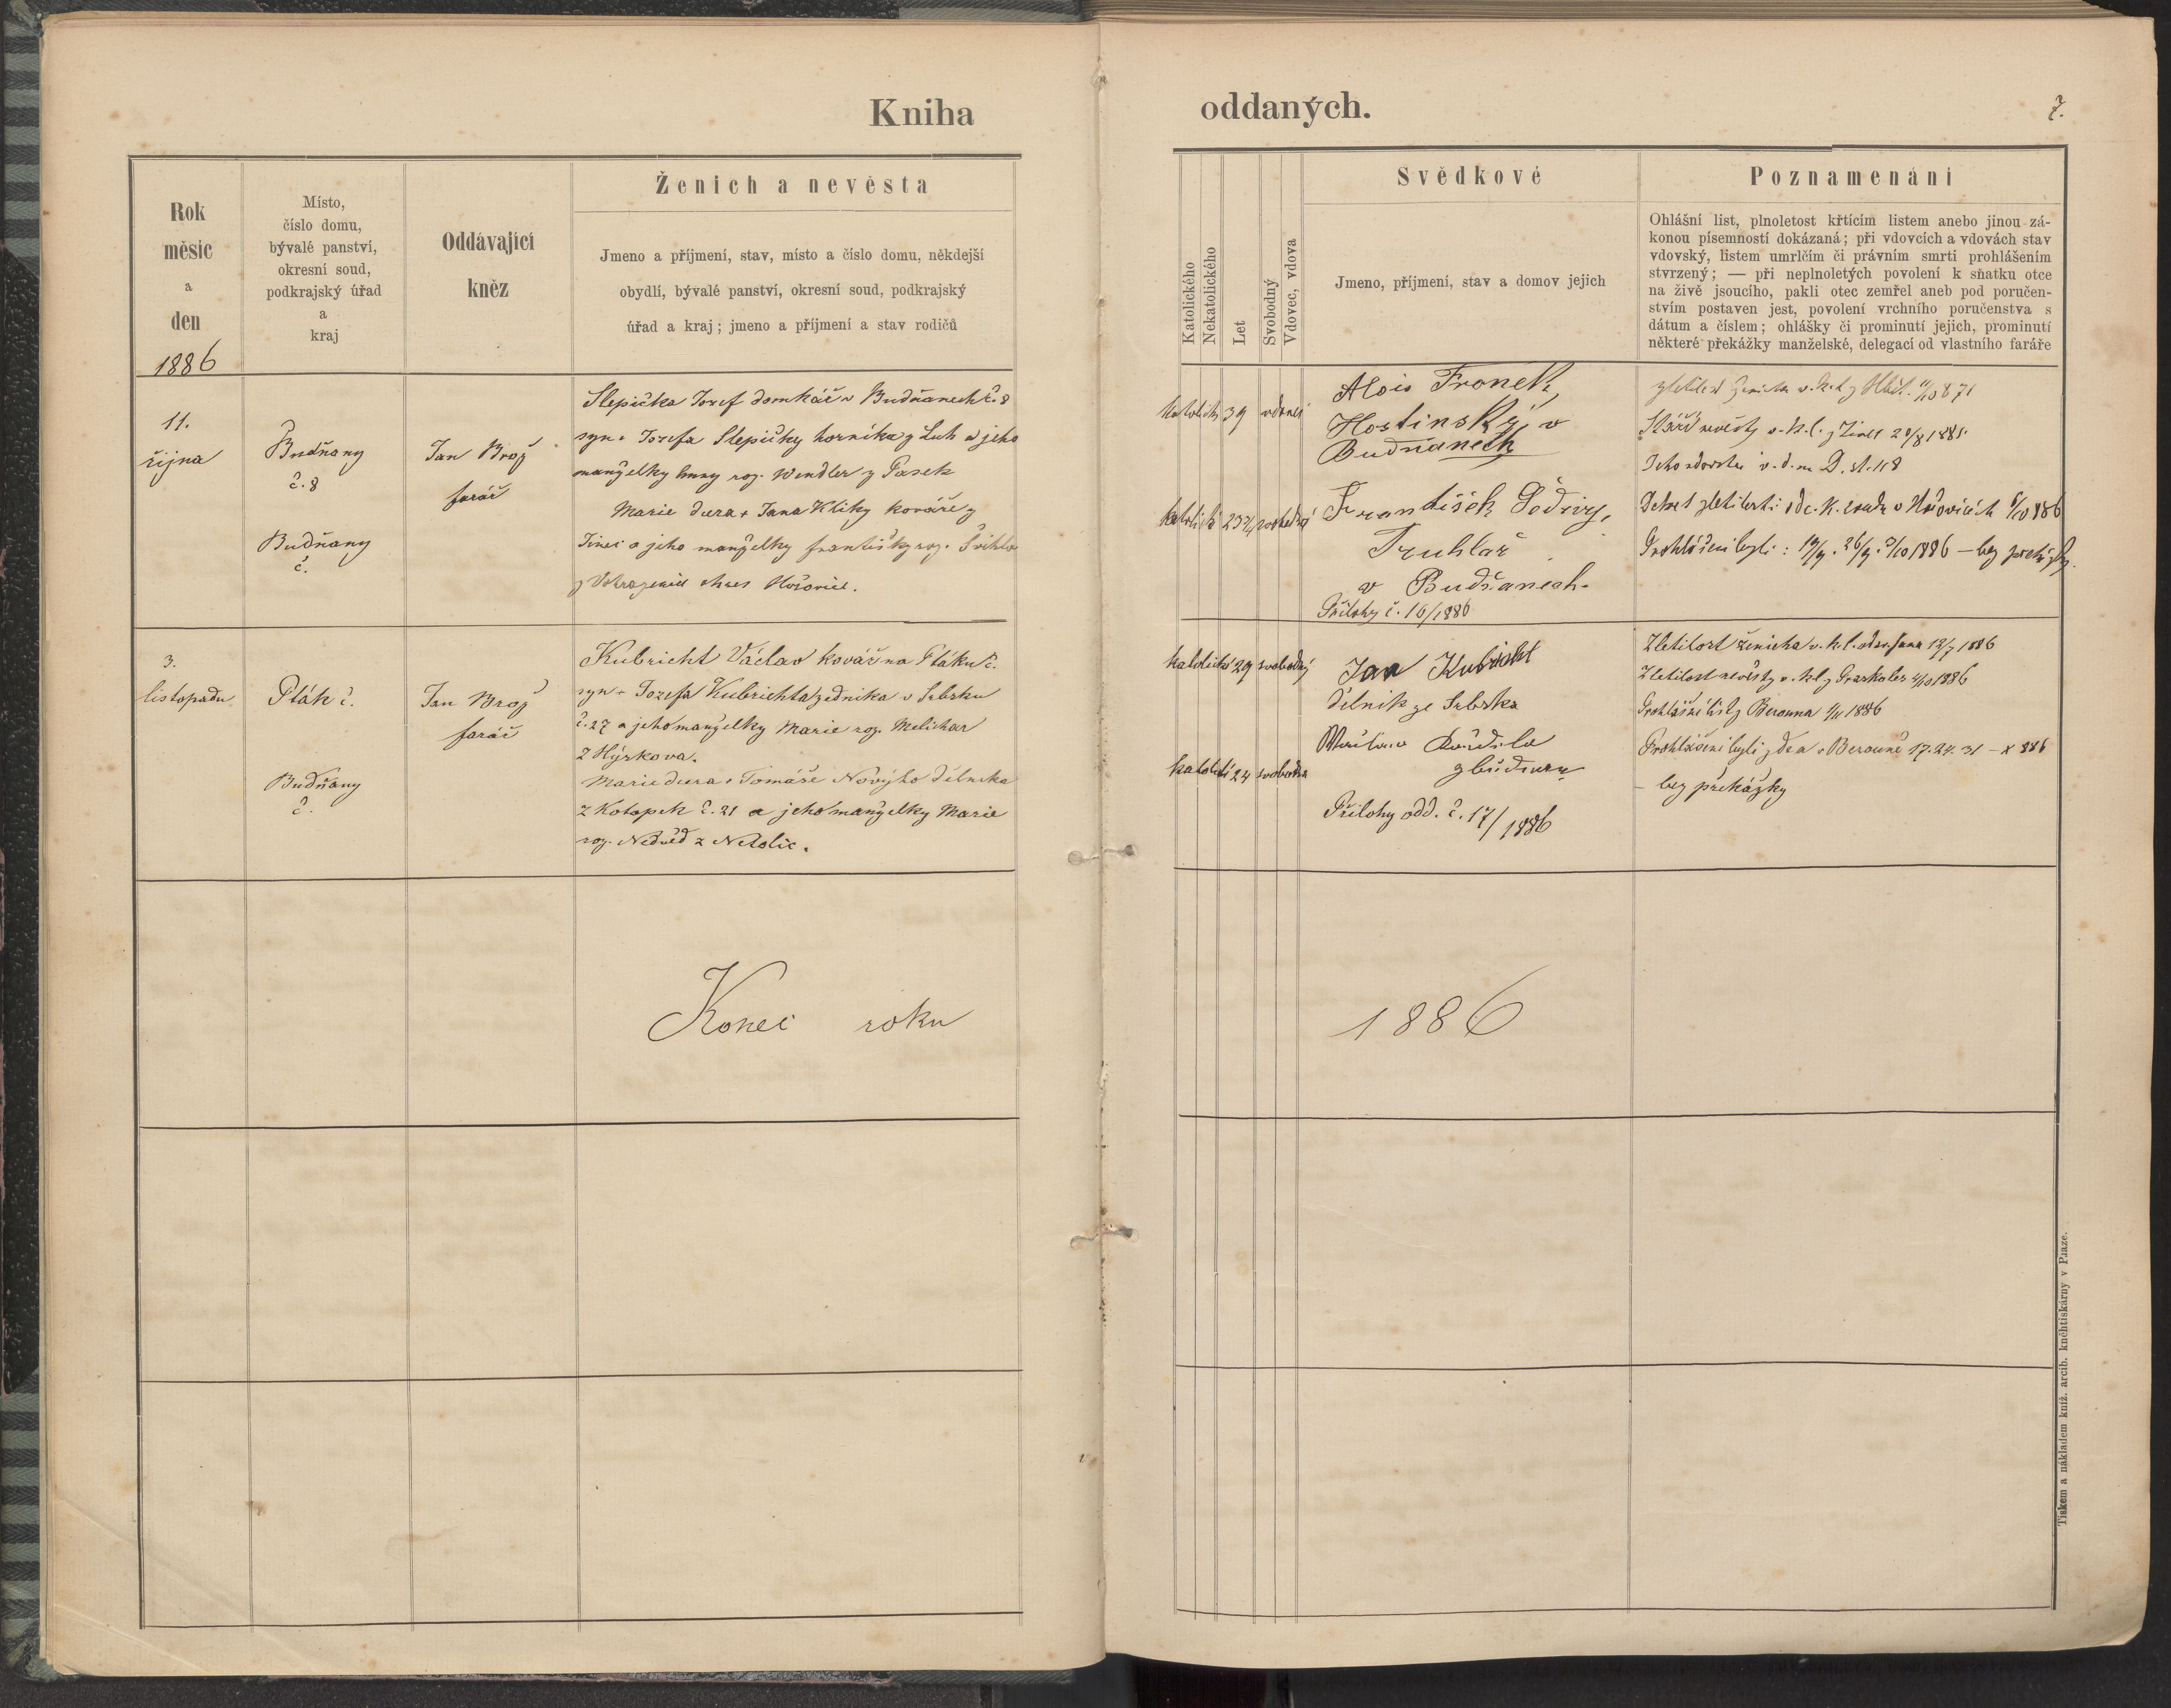 Kniha
oddaných.
7.
Rok
měsíc
a
den
1886
Místo,
číslo domu,
bývalé panství,
okresní soud,
podkrajský úřad
a
kraj
Oddávající
kněz
Ženich a nevěsta
Jmeno a příjmení, stav, místo a číslo domu, někdejší
obydlí, bývalé panství, okresní soud, podkrajský
úřad a kraj; jmeno a příjmení a stav rodičů
Katolického
Nekatolického
Let
Svobodný
Vdovec, vdova
Svědkové
Jmeno, příjmení, stav a domov jejich
Poznamenání
Ohlášní list, plnoletost křtícím listem anebo jinou zá-
konou písemností dokázaná; při vdovcích a vdovách stav
vdovský, listem umrlčím či právním smrti prohlášením
stvrzený; — při neplnoletých povolení k sňatku otce
na živě jsoucího, pakli otec zemřel aneb pod poručen-
stvím postaven jest, povolení vrchního poručenstva s
dátum a číslem; ohlášky či prominutí jejich, prominutí
některé překážky manželské, delegací od vlastního faráře
11.
října
Budňany
č. 8
Budňany
č.
Jan Brož
farář
Slepička Josef domkář v Budňanech č. 8
syn + Josefa Slepičky horníka z Luh a jeho
manželky Anny roz. Wendler z Pasek
Marie dcera + Jana Kliky kováře z
Jinec a jeho manželky Františky roz.
okres Hořovice.
katolický 39 vdovec
katolická 23 svobodná
Alois Fronek,
Hostinský v
Budňanech
František Šedivý,
Truhlář
v Budňanech.
Přílohy č. 16/1886
zletilost ženicha v. k. l. z
Stáří nevěsty v. k. l. z Jinec 20/8 1885
Dekret zletilosti od c. k. soudu v Hořovicích 6/10 886
Prohlášení byli: 19/9. 26/9. 3/10 1886 – bez překážky.
3.
listopadu
Pták č.
Budňany
č.
Jan Brož
farář
Kubricht Václav kovář na Ptáku č.
syn + Josefa Kubrichta zedníka v Srbsku
č. 27 a jeho manželky Marie roz. Melichar
z Hýskova.
Marie dcera + Tomáše Nového dělníka
z Kotopek č. 21 a jeho manželky Marie
roz. Nedvěd z Netolic.
katolický 29 svobodný
katolická 24 svobodná
Jan Kubricht
dělník ze Srbska
Přílohy odd. č. 17/1886
Zletilost ženicha v. k. l. od sv. Jana 12/7 1886
Zletilost nevěsty v. k. l. z Praskoles 4/10 1886
Prohlášní list z Berouna 1/11 1886
Prohlášeni byli zde a v Berouně 17. 24. 31 – X 886
– bez překážky
Konec roku
1886
Tiskem a nákladem kníž. arcib. kněhtiskárny v Praze.